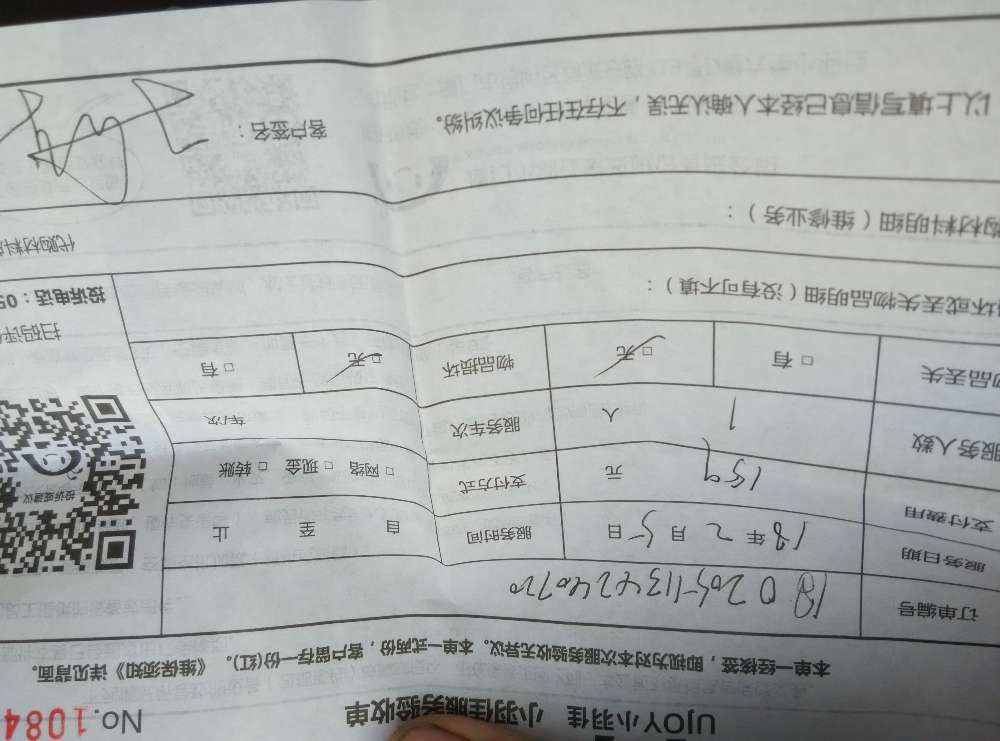 UJOY小羽佳 小羽佳服务验收单 No.1084
本单一经核签，即视为对本次服务验收无异议。本单一式两份，客户留存一份(红)。《维保须知》详见背面。
订单编号
服务日期 18年2月5日 服务时间 自 至 止
支付费用 159 元 支付方式 □ 网络 □ 现金 □ 转账
服务人数 1 人 服务车次 车次
物品丢失 □ 有 □ 无 物品损坏 □ 无 □ 有
投诉或建议
扫码评
投诉电话：05
坏或丢失物品明细（没有可不填）：
购材料明细（维修业务）：
代购材料
以上填写信息已经本人确认无误，不存在任何争议纠纷。 客户签名：